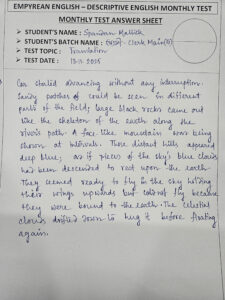 EMPYREAN ENGLISH – DESCRIPTIVE ENGLISH MONTHLY TEST
MONTHLY TEST ANSWER SHEET
➤ STUDENT'S NAME : Spandan Mallick
➤ STUDENT'S BATCH NAME : Clerk Main
➤ TEST TOPIC : Translation
➤ TEST DATE : 13.11.2025
Car started advancing without any interruption.
Sandy patches could be seen in different
parts of the field; large black rocks came out
like the skeleton of the earth along the
rivers path. A face like mountain was being
shown at intervals. Those distant hills appeared
deep blue; as if pieces of the sky's blue clouds
had been descended to rest upon the earth.
They seemed ready to fly in the sky lifting
their wings upwards but could not fly because
they were bound to the earth. The celestial
clouds drifted down to hug it before floating
again.